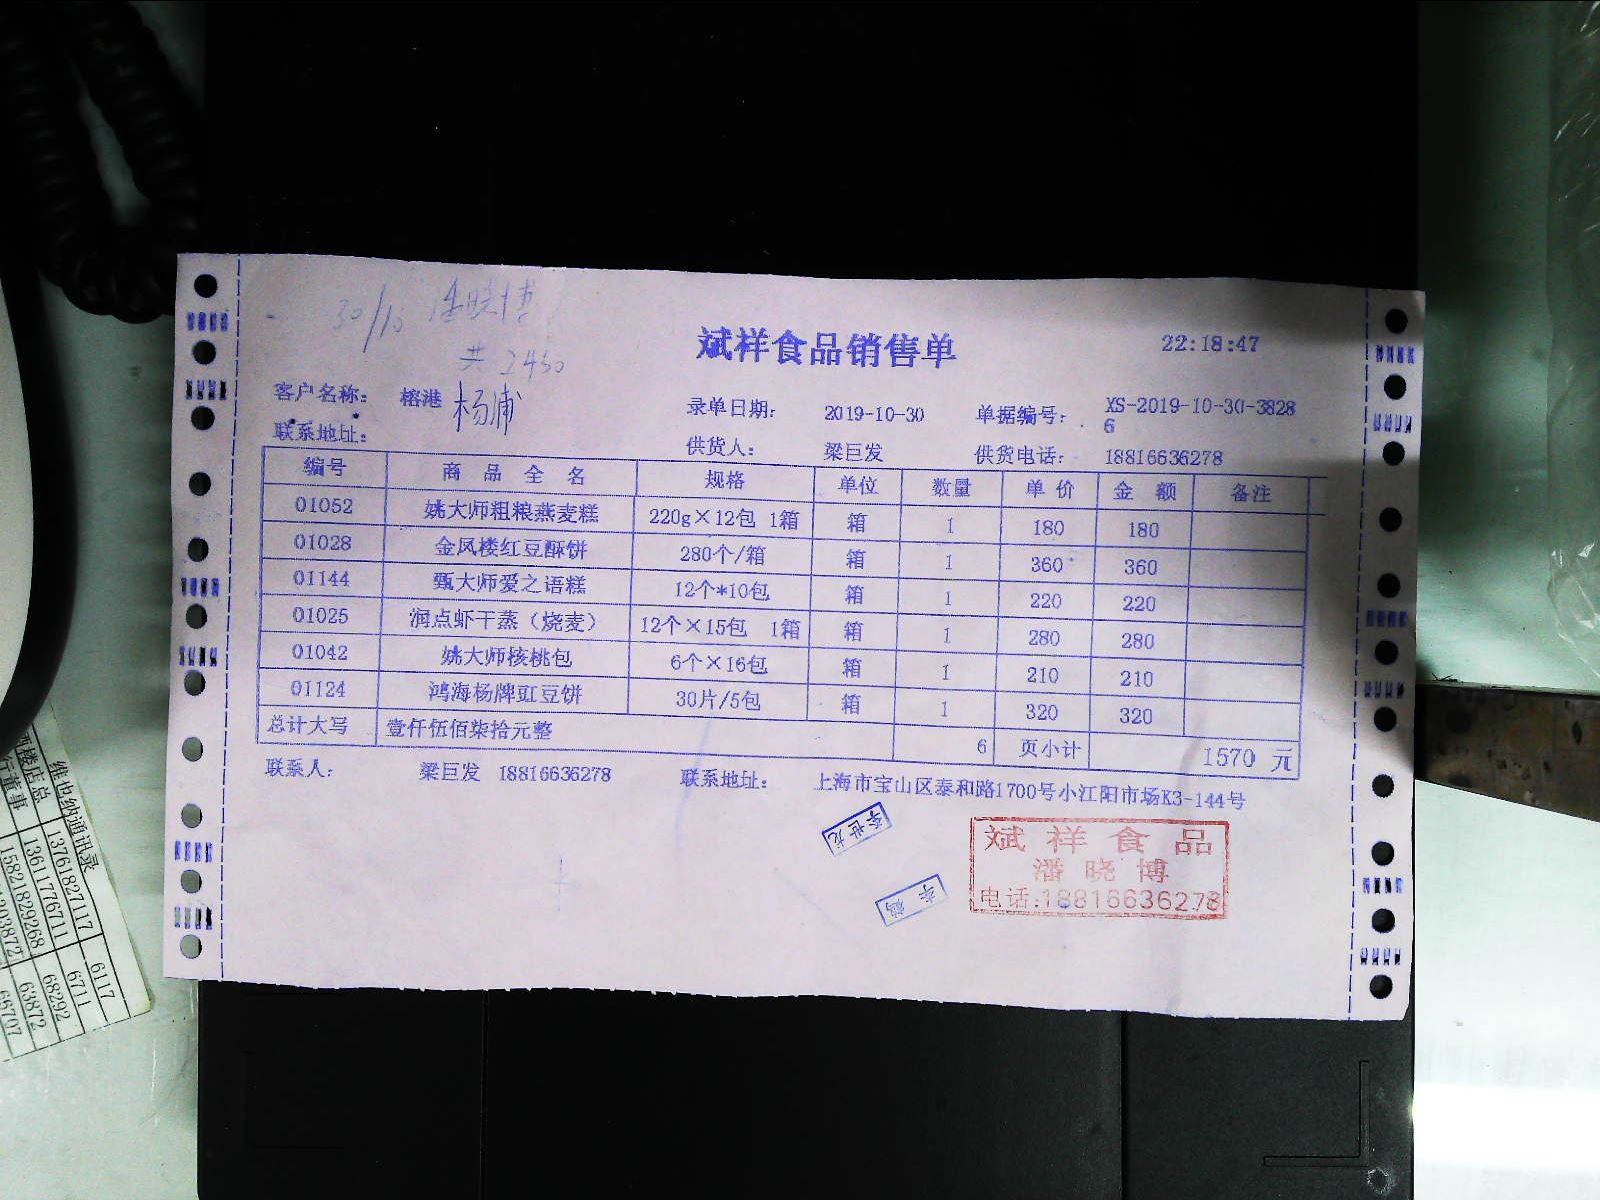 30/10 潘晓博
共 2450
斌祥食品销售单 22:18:47
客户名称: 榕港 杨浦 录单日期: 2019-10-30 单据编号: XS-2019-10-30-3828
6
联系地址: 供货人: 梁巨发 供货电话: 18816636278
编号 商 品 全 名 规格 单位 数量 单 价 金 额 备注
01052 姚大师粗粮燕麦糕 220g×12包 1箱 箱 1 180 180
01028 金凤楼红豆酥饼 280个/箱 箱 1 360 360
01144 甄大师爱之语糕 12个*10包 箱 1 220 220
01025 润点虾干蒸（烧麦） 12个×15包 1箱 箱 1 280 280
01042 姚大师核桃包 6个×16包 箱 1 210 210
01124 鸿海杨牌豇豆饼 30片/5包 箱 1 320 320
总计大写 壹仟伍佰柒拾元整 6 页小计 1570 元
联系人: 梁巨发 18816636278 联系地址: 上海市宝山区泰和路1700号小江阳市场K3-144号
李世龙
李鹤
斌祥食品
潘晓博
电话:18816636278
维也纳通讯录
13761827117 6117
13611776711 6711
15821829268 68292
63872
66707